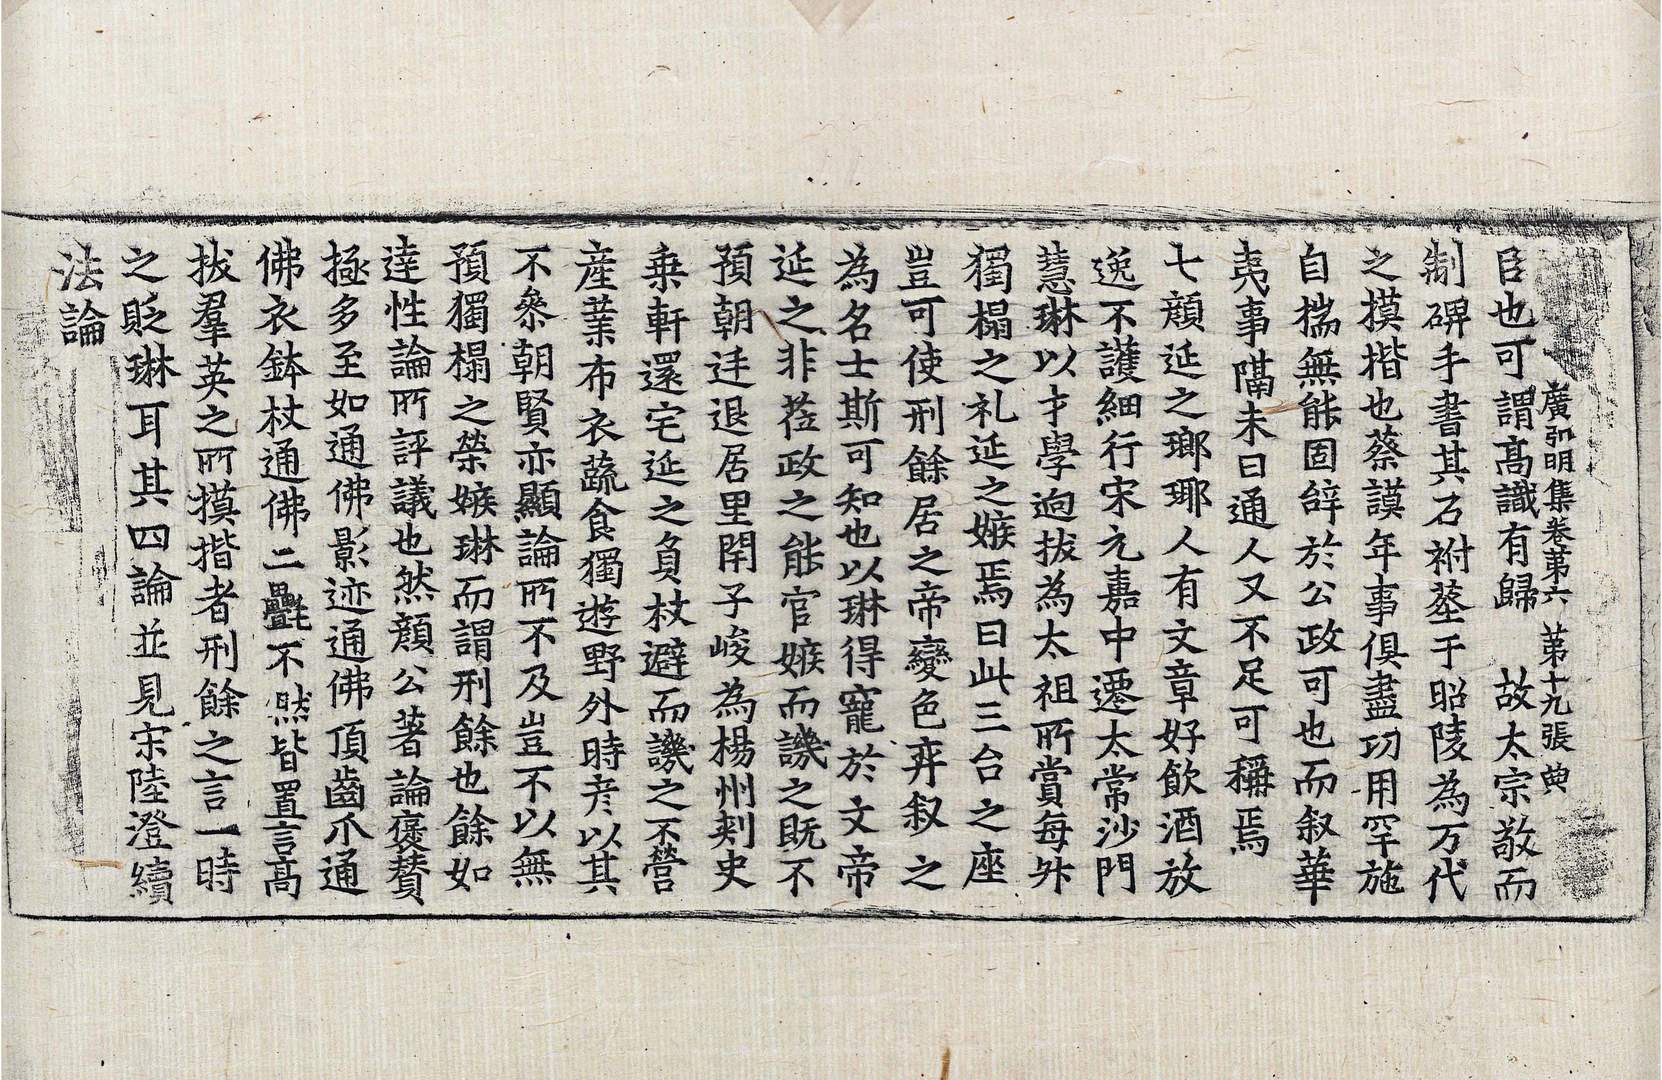 廣弘明集卷第六　第十九張　典
臣也可謂高識有歸　故太宗敬而
制碑手書其石祔塟于昭陵為万代
之摸揩也蔡謨年事俱盡功用罕施
自揣無能固辝於公政可也而叙華
夷事隔未曰通人又不足可稱焉
七顔延之瑯瑘人有文章好飲酒放
逸不護細行宋元嘉中遷太常沙門
慧琳以才學逈拔為太祖所賞每外
獨榻之礼延之嫉焉曰此三台之座
豈可使刑餘居之帝變色弃叙之
為名士斯可知也以琳得寵於文帝
延之非莅政之能官嫉而譏之既不
預朝廷退居里閈子峻為楊州刾史
乗軒還宅延之負杖避而譏之不營
産業布衣蔬食獨遊野外時彦以其
不叅朝賢亦顯論所不及豈不以無
預獨榻之榮嫉琳而謂刑餘也餘如
達性論所評議也然顔公著論褒賛
極多至如通佛影迹通佛頂齒爪通
佛衣鉢杖通佛二㲲不然皆置言高
拔羣英之所摸揩者刑餘之言一時
之貶琳耳其四論並見宋陸澄續
法論